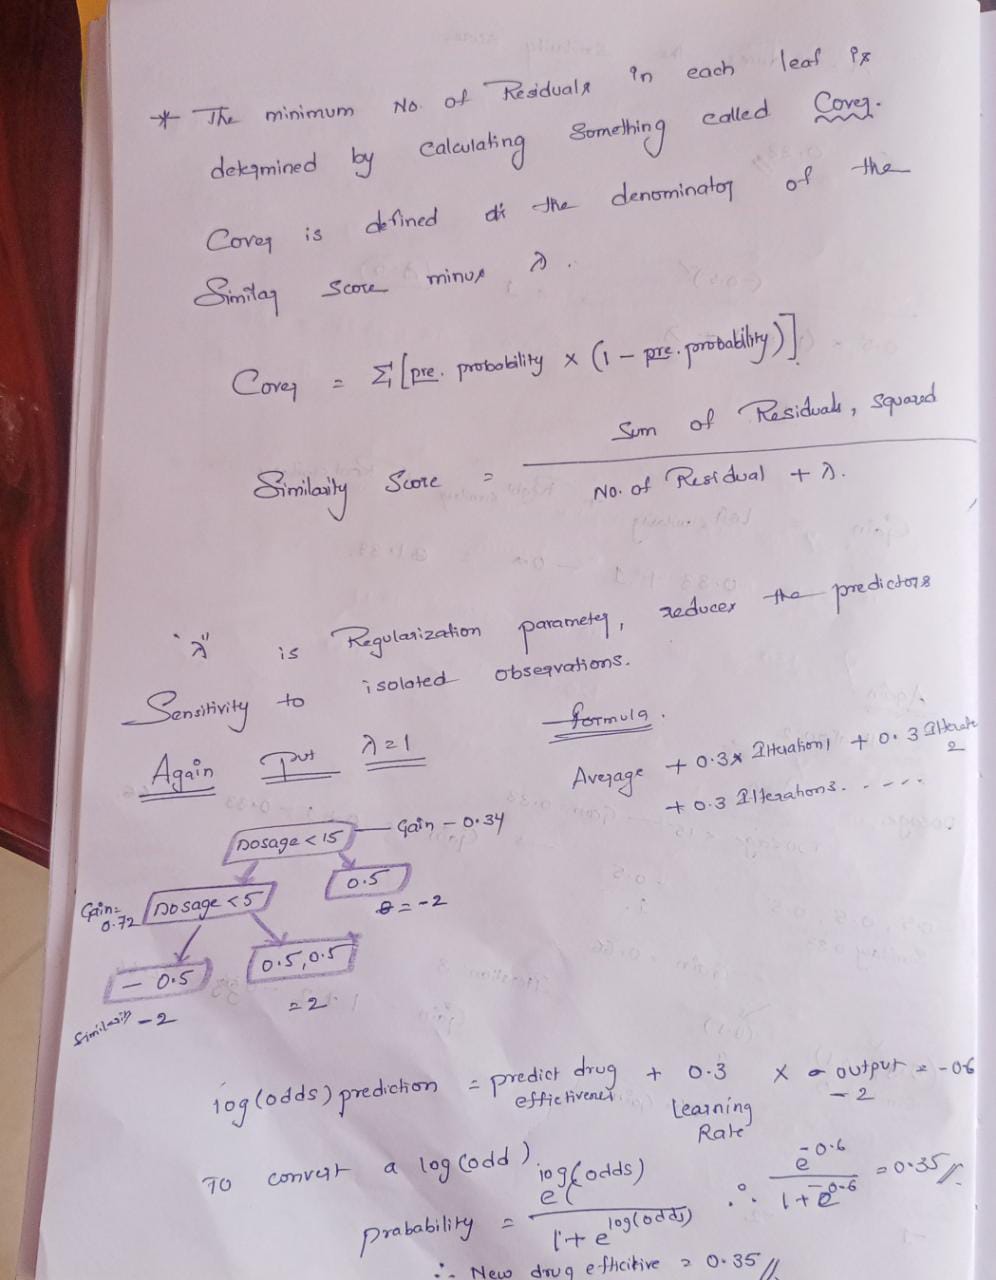 * The minimum No. of Residuals in each leaf is
determined by calculating Something called Cover.
Cover is defined the denominator of the
Similar Score minus λ.
Cover = Σ [pre. probability x (1 - pre. probability)]
Similarity Score = Sum of Residuals, Squared
No. of Residual + λ.
"λ" is Regularization parameter, reduces the predictors
Sensitivity to isolated observations.
Again Put λ=1
formula.
Average + 0.3x Iteration1 + 0.3 Iterate 2
+ 0.3 Iterations. - - - -
Dosage < 15 — Gain - 0.34
Gain= 0.72 Dosage < 5
0.5
θ = -2
- 0.5
0.5, 0.5
Similarity - 2
= 2
log(odds) prediction = predict drug effictivenes + 0.3 x output = -0.6
Learning Rate
- 2
To convert a log(odd)
prabability = e^(log(odds) / 1 + e^log(odds) ∴ e^-0.6 / 1 + e^-0.6 = 0.35//
∴ New drug efficitive = 0.35//